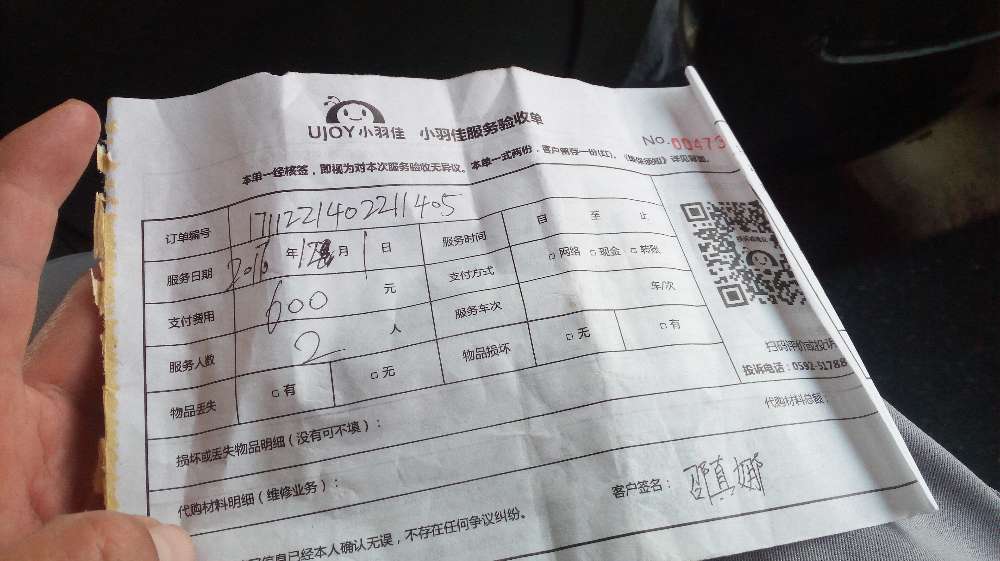 UJOY小羽佳 小羽佳服务验收单
No. 00473
本单一经核签，即视为对本次服务验收无异议。本单一式两份，客户需存一份(红)。
订单编号 171122140221405
服务日期 年 12 月 1 日 服务时间 自 至 止
支付费用 600 元 支付方式 □ 网络 □ 现金 □ 转账
服务人数 2 人 服务车次 车/次
物品丢失 □ 有 □ 无 物品损坏 □ 无 □ 有
扫码评价或投诉
投诉电话：0592-51788
损坏或丢失物品明细（没有可不填）：
代购材料总额：
代购材料明细（维修业务）：
客户签名：邵真娜
信息已经本人确认无误，不存在任何争议纠纷。